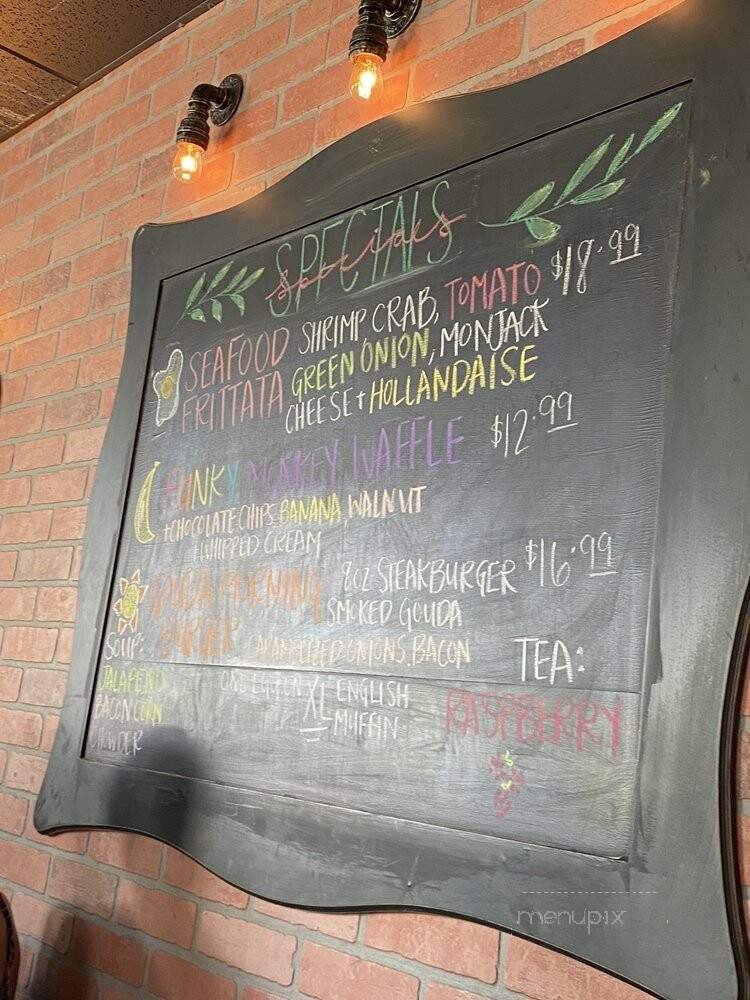 SPECIALS
specials
SEAFOOD FRITTATA
SHRIMP CRAB, TOMATO $18.99
GREEN ONION, MONJACK
CHEESE + HOLLANDAISE
FUNKY MONKEY WAFFLE $12.99
+CHOCOLATE CHIPS, BANANA, WALNUT
+WHIPPED CREAM
MORNING BURGER
9oz STEAKBURGER $16.99
SMOKED GOUDA
CARAMELIZED ONIONS, BACON
ONE EGG ON XL ENGLISH
MUFFIN
SOUP:
JALAPENO
BACON CORN
CHOWDER
TEA:
RASPBERRY
menupix